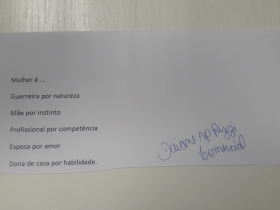 Mulher é ...
Guerreira por natureza
Mãe por instinto
Profissional por competência
Esposa por amor
Dona de casa por habilidade.
Comercial